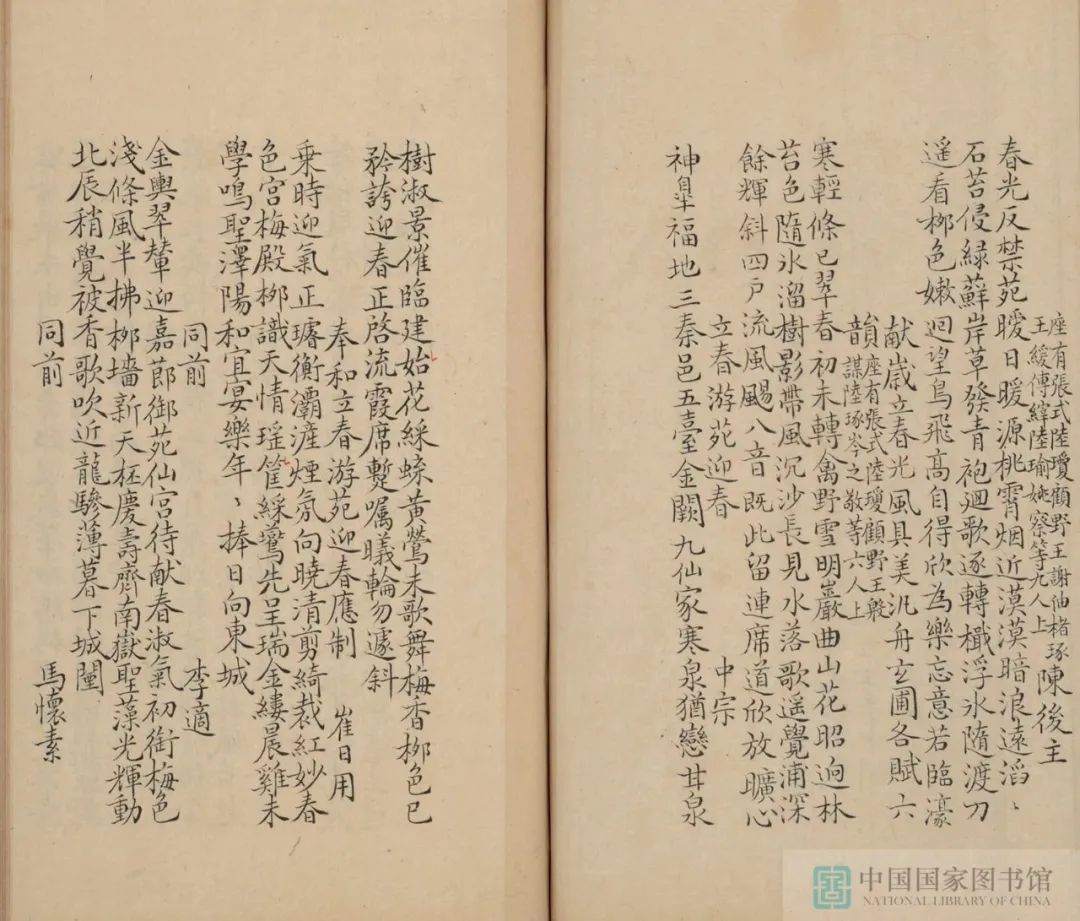 座有張式陸瓊顧野王謝伷褚琢
王緩傅縡陸瑜姚察等九人上
陳後主
春光反禁苑暧日暖源桃霄烟近漠漠暗浪遠滔〻
石苔侵緑蘚岸草發青袍廻歌逐轉檝浮氷隨渡刀
遥看栁色嫩迥望鳥飛髙自得欣為樂忘意若臨濠
献歳立春光風具美汎舟玄圃各賦六
韻
座有張式陸瓊顧野王殷
謀陸琢岑之敬等六人上
寒輕條已翠春初未轉禽野雪明巖曲山花昭逈林
苔色隨氷溜樹影帶風沉沙長見水落歌遥覺浦深
餘輝斜四戸流風颺八音既此留連席道欣放曠心
立春游苑迎春
中宗
神臯福地三秦邑五臺金闕九仙家寒泉猶戀甘泉
樹淑景催臨建始花綵蝶黄鶯未歌舞梅香栁色已
矜誇迎春正啓流霞席蹔嘱曦輪勿遽斜
奉和立春游苑迎春應制
崔日用
乗時迎氣正璿衡灞滻煙氛向曉清剪綺裁紅妙春
色宮梅殿栁識天情瑶筐綵鷰先呈瑞金縷晨雞未
學鳴聖澤陽和宜宴樂年〻捧日向東城
同前
李適
金輿翠輦迎嘉節御苑仙宮待献春淑氣初銜梅色
淺條風半拂栁墻新天杯慶壽齊南嶽聖藻光輝動
北辰稍覺被香歌吹近龍驂薄暮下城闉
同前
馬懷素
中国国家图书馆
NATIONAL LIBRARY OF CHINA